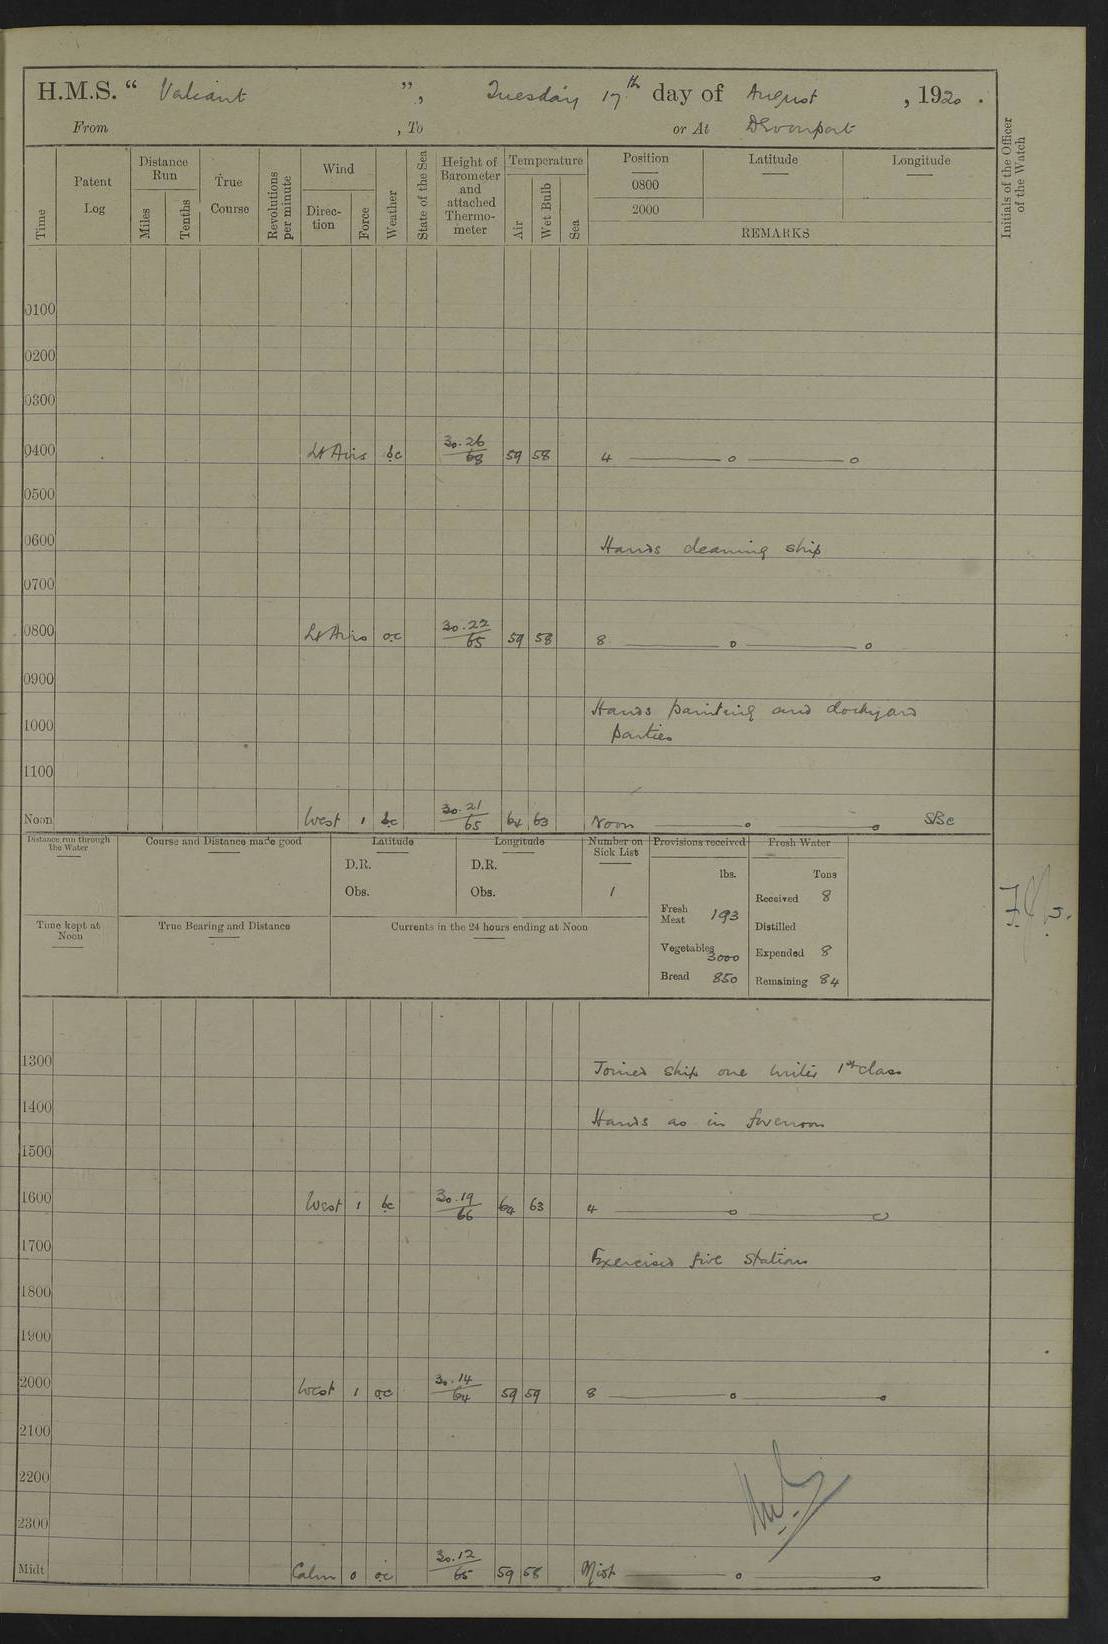 H.M.S. “ Valiant ”, Tuesday 17th day of August , 1920 .
From , To or At Devonport
Time
Patent Log
Distance Run
Miles
Tenths
True Course
Revolutions per minute
Wind
Direction
Force
Weather
State of the Sea
Height of Barometer and attached Thermometer
Temperature
Air
Wet Bulb
Sea
Position
0800
2000
Latitude
Longitude
REMARKS
Initials of the Officer of the Watch
0100
0200
0300
0400 Lt Airs bc 30.26/68 59 58 4
0500
0600 Hands cleaning ship
0700
0800 Lt Airs oc 30.22/65 59 58 8
0900
Hands painting and dockyard
1000 parties
1100
Noon West 1 bc 30.21/65 64 63 Noon
Distance run through the Water
Course and Distance made good
Latitude
D.R.
Obs.
Longitude
D.R.
Obs.
Number on Sick List
1
Provisions received
lbs.
Fresh Meat 193
Vegetables 3000
Bread 850
Fresh Water
Tons
Received 8
Distilled
Expended 8
Remaining 84
Time kept at Noon
True Bearing and Distance
Currents in the 24 hours ending at Noon
1300 Joined ship one writer 1st class
1400 Hands as in forenoon
1500
1600 West 1 bc 30.19/66 64 63 4
1700 Exercised fire stations
1800
1900
2000 West 1 oc 30.14/64 59 59 8
2100
2200
2300
Midt Calm 0 oc 30.12/65 59 58 Midt